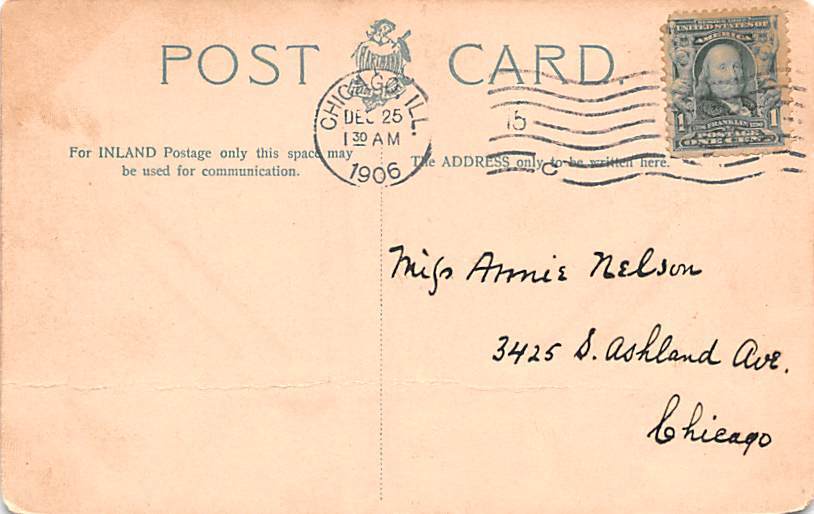 POST CARD.
HARTMANN
CHICAGO, ILL.
DEC 25
1 30 AM
1906
15
C
UNITED STATES OF
AMERICA
FRANKLIN
1 POSTAGE 1
ONE CENT
For INLAND Postage only this space may
be used for communication.
The ADDRESS only to be written here.
Miss Annie Nelson
3425 S. Ashland Ave.
Chicago